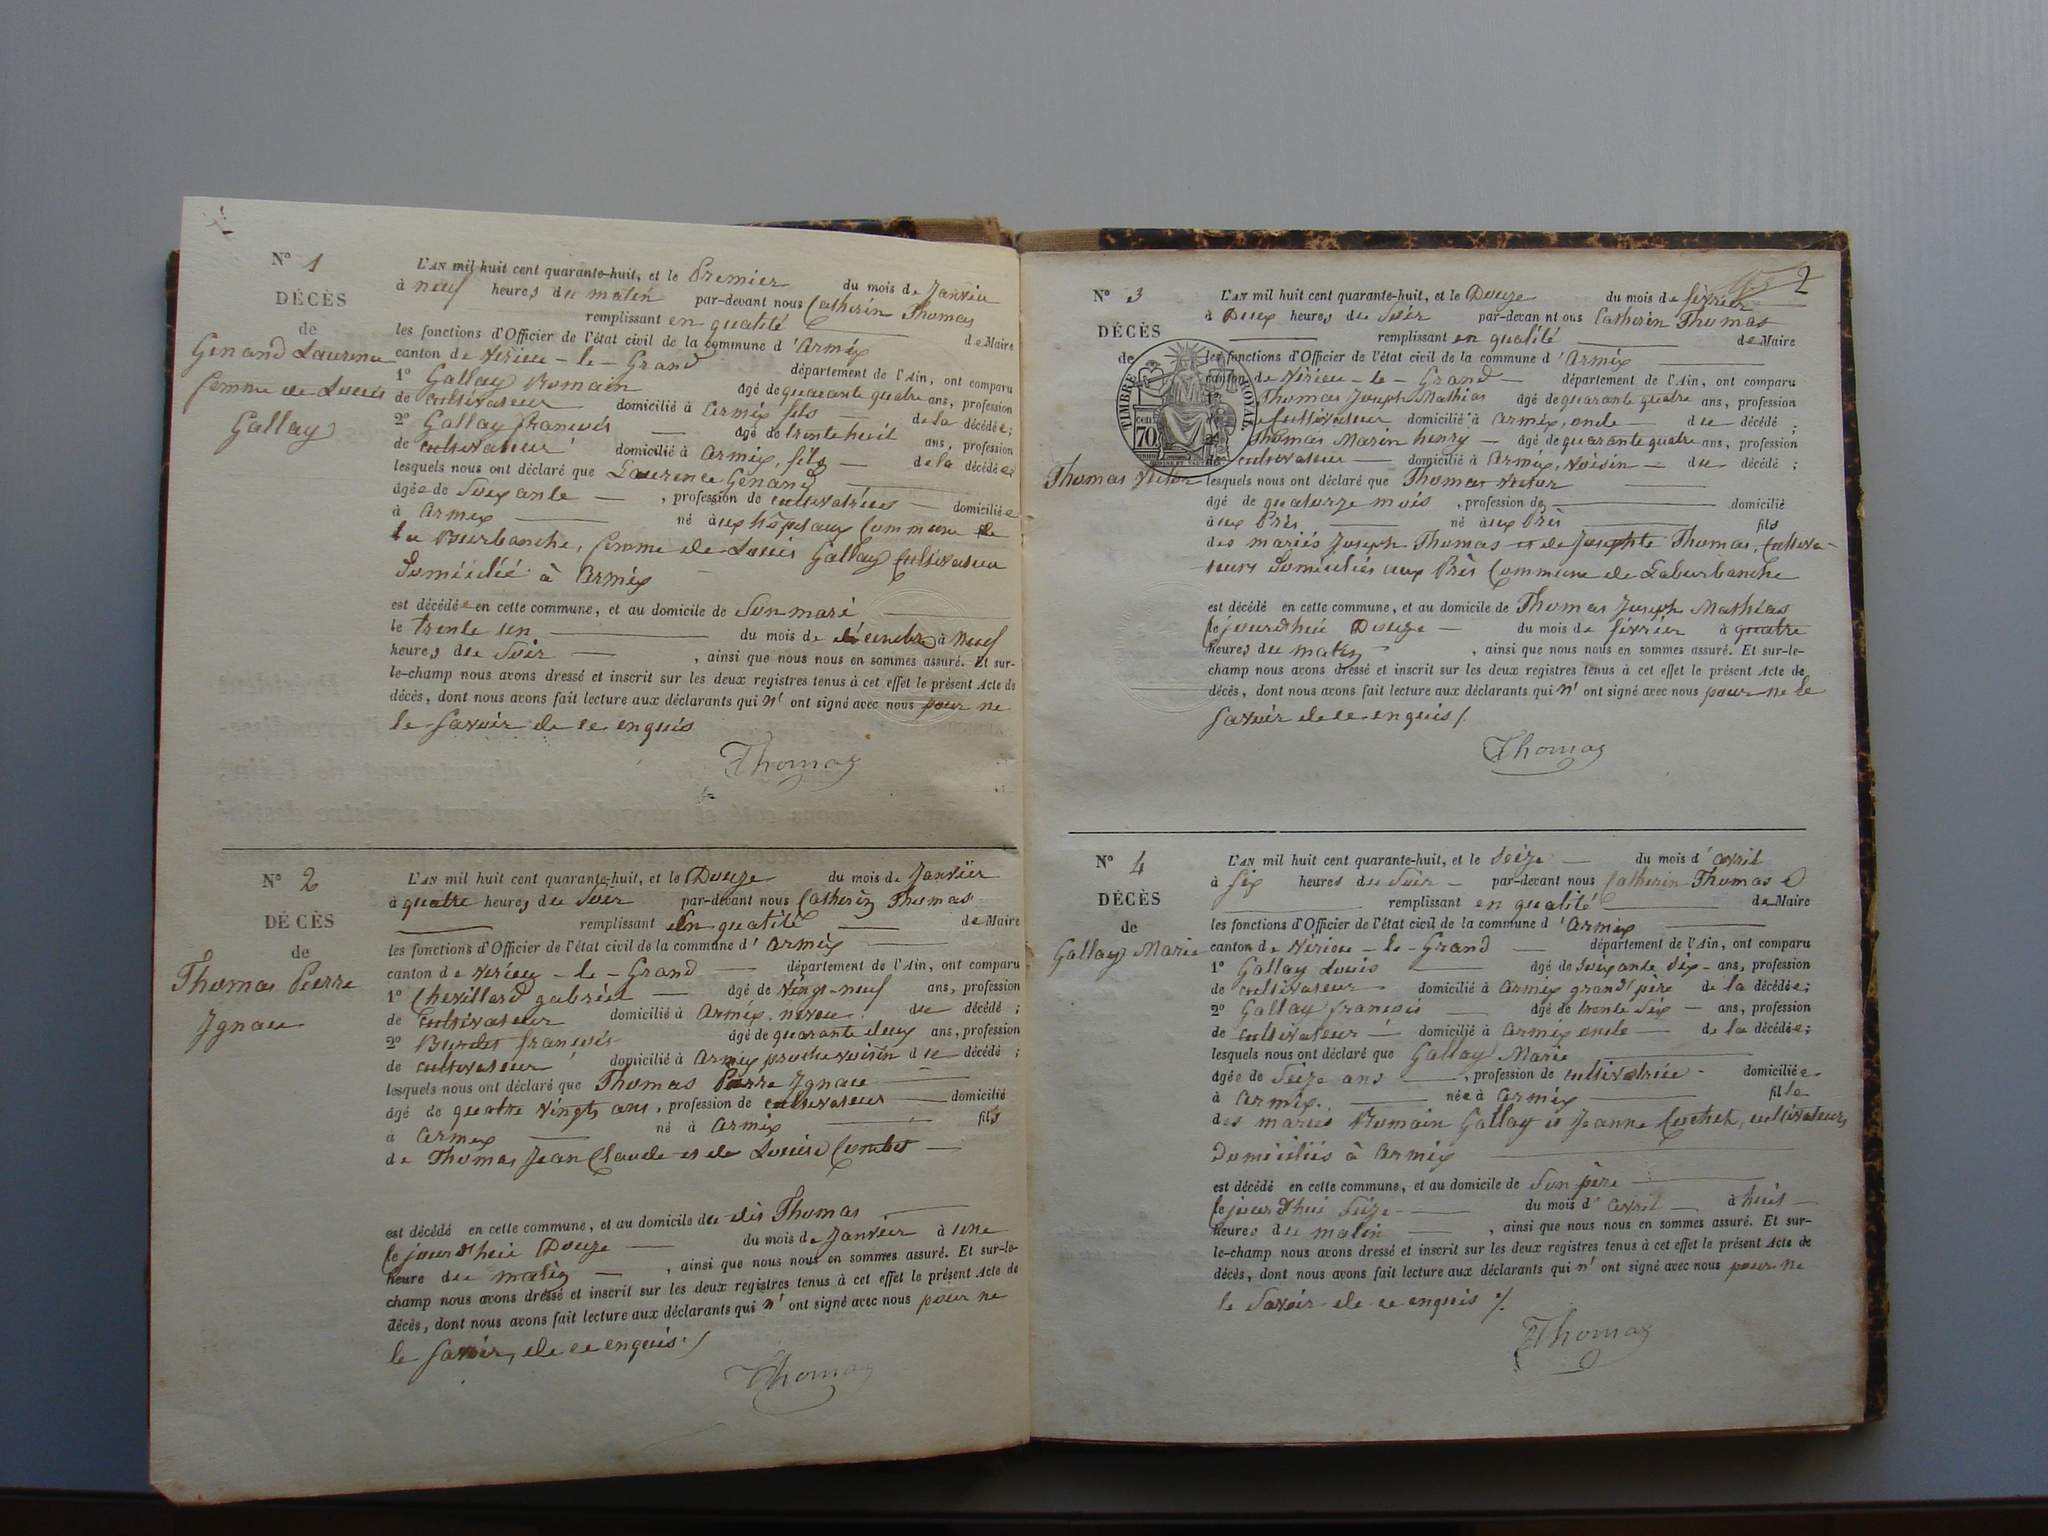 N° 1
DÉCÈS
de
Genand Laurence
femme de Louis
Gallay
L'AN mil huit cent quarante-huit, et le Premier du mois de Janvier
à neuf heures du matin par-devant nous Catherin Thomas
remplissant en qualité de Maire
les fonctions d'Officier de l'état civil de la commune d'Armix
canton de Virieu-le-Grand département de l'Ain, ont comparu
1° Gallay Romain âgé de quarante quatre ans, profession
de cultivateur domicilié à Armix fils de la décédée;
2° Gallay françois âgé de trente huit ans, profession
de cultivateur domicilié à Armix, fils de la décédée
lesquels nous ont déclaré que Laurence Genand
âgée de soixante, profession de cultivatrice domiciliée
à Armix né aux hôpitaux Commune de
la Burbanche, femme de Louis Gallay cultivateur
Domicilié à Armix
est décédée en cette commune, et au domicile de Son mari
le trente un du mois de décembre à neuf
heures du Soir, ainsi que nous nous en sommes assuré. Et sur-
le-champ nous avons dressé et inscrit sur les deux registres tenus à cet effet le présent Acte de
décès, dont nous avons fait lecture aux déclarants qui n'ont signé avec nous pour ne
le Savoir de ce enquis
Thomas
N° 2
DÉCÈS
de
Thomas Pierre
Ignace
L'AN mil huit cent quarante-huit, et le Douze du mois de Janvier
à quatre heures du Soir par-devant nous Catherin Thomas
remplissant En qualité de Maire
les fonctions d'Officier de l'état civil de la commune d'Armix
canton de Virieu-le-Grand département de l'Ain, ont comparu
1° Chevillard gabriel âgé de vingt-neuf ans, profession
de cultivateur domicilié à Armix, neveu du décédé;
2° Burdet françois âgé de quarante deux ans, profession
de cultivateur domicilié à Armix proche voisin du décédé;
lesquels nous ont déclaré que Thomas Pierre Ignace
âgé de quatre vingts ans, profession de cultivateur domicilié
à Armix né à Armix fils
de Thomas Jean Claude et de Louise Combet
est décédé en cette commune, et au domicile du dit Thomas
Cejourd'hui Douze du mois de Janvier à une
heure du matin, ainsi que nous nous en sommes assuré. Et sur-le-
champ nous avons dressé et inscrit sur les deux registres tenus à cet effet le présent Acte de
décès, dont nous avons fait lecture aux déclarants qui n'ont signé avec nous pour ne
le Savoir, de ce enquis./
Thomas
2
N° 3
DÉCÈS
de
TIMBRE ROYAL
70 cen
Thomas Victor
L'AN mil huit cent quarante-huit, et le Douze du mois de février
à Deux heures du Soir par-devan nt ous Catherin Thomas
remplissant en qualité de Maire
les fonctions d'Officier de l'état civil de la commune d'Armix
canton de Virieu-le-Grand département de l'Ain, ont comparu
Thomas Joseph Mathias âgé de quarante quatre ans, profession
de Cultivateur domicilié à Armix, oncle du décédé;
Thomas Marin henry âgé de quarante quatre ans, profession
de cultivateur domicilié à Armix, voisin du décédé;
lesquels nous ont déclaré que Thomas Victor
âgé de quatorze mois, profession de domicilié
aux Près né aux Près fils
des mariés Joseph Thomas et de Josephte Thomas, Cultiva-
teurs Domiciliés aux Près Commune de Laburbanche
est décédé en cette commune, et au domicile de Thomas Joseph Mathias
Cejourd'hui Douze du mois de février à quatre
heures du matin, ainsi que nous nous en sommes assuré. Et sur-le-
champ nous avons dressé et inscrit sur les deux registres tenus à cet effet le présent Acte de
décès, dont nous avons fait lecture aux déclarants qui n'ont signé avec nous pour ne le
Savoir de ce enquis/.
Thomas
N° 4
DÉCÈS
de
Gallay Marie
L'AN mil huit cent quarante-huit, et le Seize du mois d'avril
à Six heures du Soir par-devant nous Catherin Thomas
remplissant en qualité de Maire
les fonctions d'Officier de l'état civil de la commune d'Armix
canton de Virieu-le-Grand département de l'Ain, ont comparu
1° Gallay Louis âgé de soixante dix ans, profession
de cultivateur domicilié à Armix grand père de la décédée;
2° Gallay françois âgé de trente Six ans, profession
de cultivateur domicilié à Armix oncle de la décédée;
lesquels nous ont déclaré que Gallay Marie
âgée de Seize ans, profession de cultivatrice domiciliée
à Armix. née à Armix fille
des mariés Romain Gallay et Jeanne Cochet, cultivateurs
Domiciliés à Armix
est décédé en cette commune, et au domicile de Son père
Cejourd'hui Seize du mois d'avril à huit
heures du matin, ainsi que nous nous en sommes assuré. Et sur-
le-champ nous avons dressé et inscrit sur les deux registres tenus à cet effet le présent Acte de
décès, dont nous avons fait lecture aux déclarants qui n'ont signé avec nous pour ne
le Savoir de ce enquis %.
Thomas